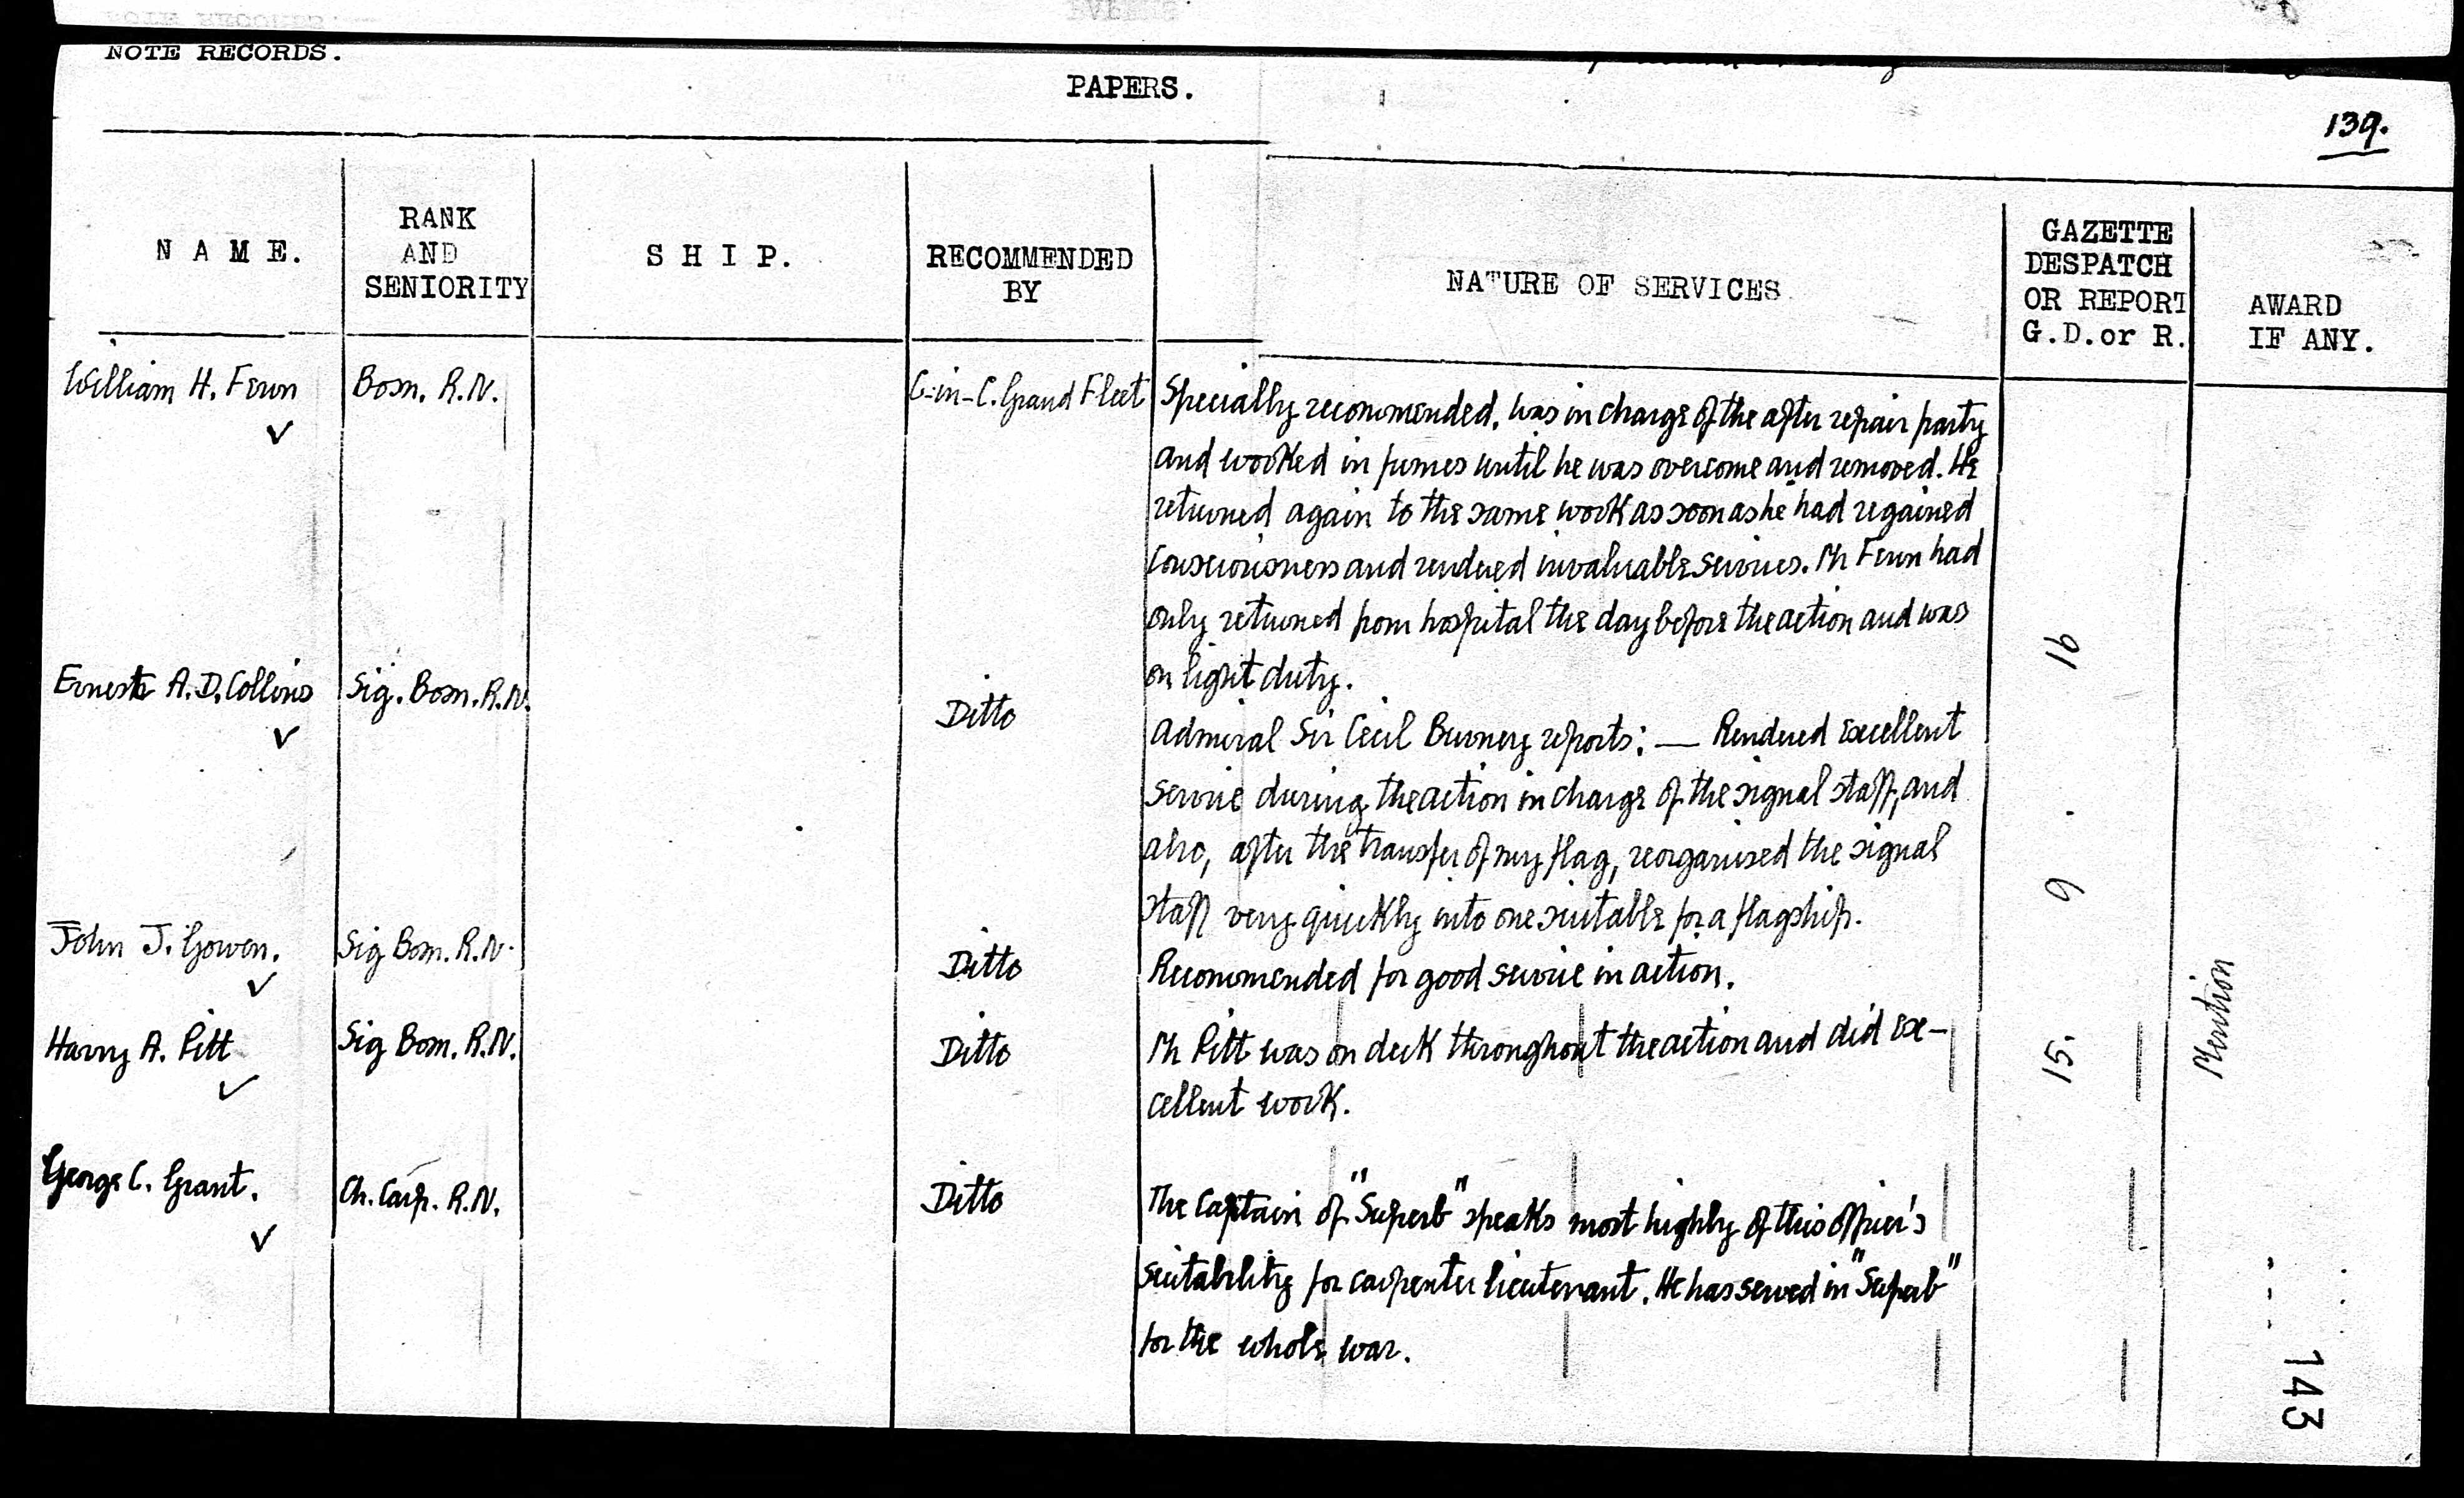 NOTE RECORDS.
PAPERS.
139.
NAME.
RANK
AND
SENIORITY
SHIP.
RECOMMENDED
BY
NATURE OF SERVICES
GAZETTE
DESPATCH
OR REPORT
G.D. or R.
AWARD
IF ANY.
William H. Fenn
Bosn. R.N.
C-in-C. Grand Fleet
Specially recommended. Was in charge of the after repair party
and worked in fumes until he was overcome and removed. He
returned again to the same work as soon as he had regained
consciousness and rendered invaluable services. Mr Fenn had
only returned from hospital the day before the action and was
on light duty.
Ernest A. D. Collins
Sig. Bosn. R.N.
Ditto
Admiral Sir Cecil Burney reports: — Rendered excellent
service during the action in charge of the signal staff, and
also, after the transfer of my flag, reorganised the signal
staff very quickly into one suitable for a flagship.
John J. Gowen.
Sig Bosn. R.N.
Ditto
Recommended for good service in action.
Harry A. Pitt
Sig Bosn. R.N.
Ditto
Mr Pitt was on deck throughout the action and did ex-
cellent work.
George C. Grant.
Ch. Carp. R.N.
Ditto
The Captain of "Superb" speaks most highly of this officer's
suitability for carpenter lieutenant. He has served in "Superb"
for the whole war.
15. 9. 16
Mention
143